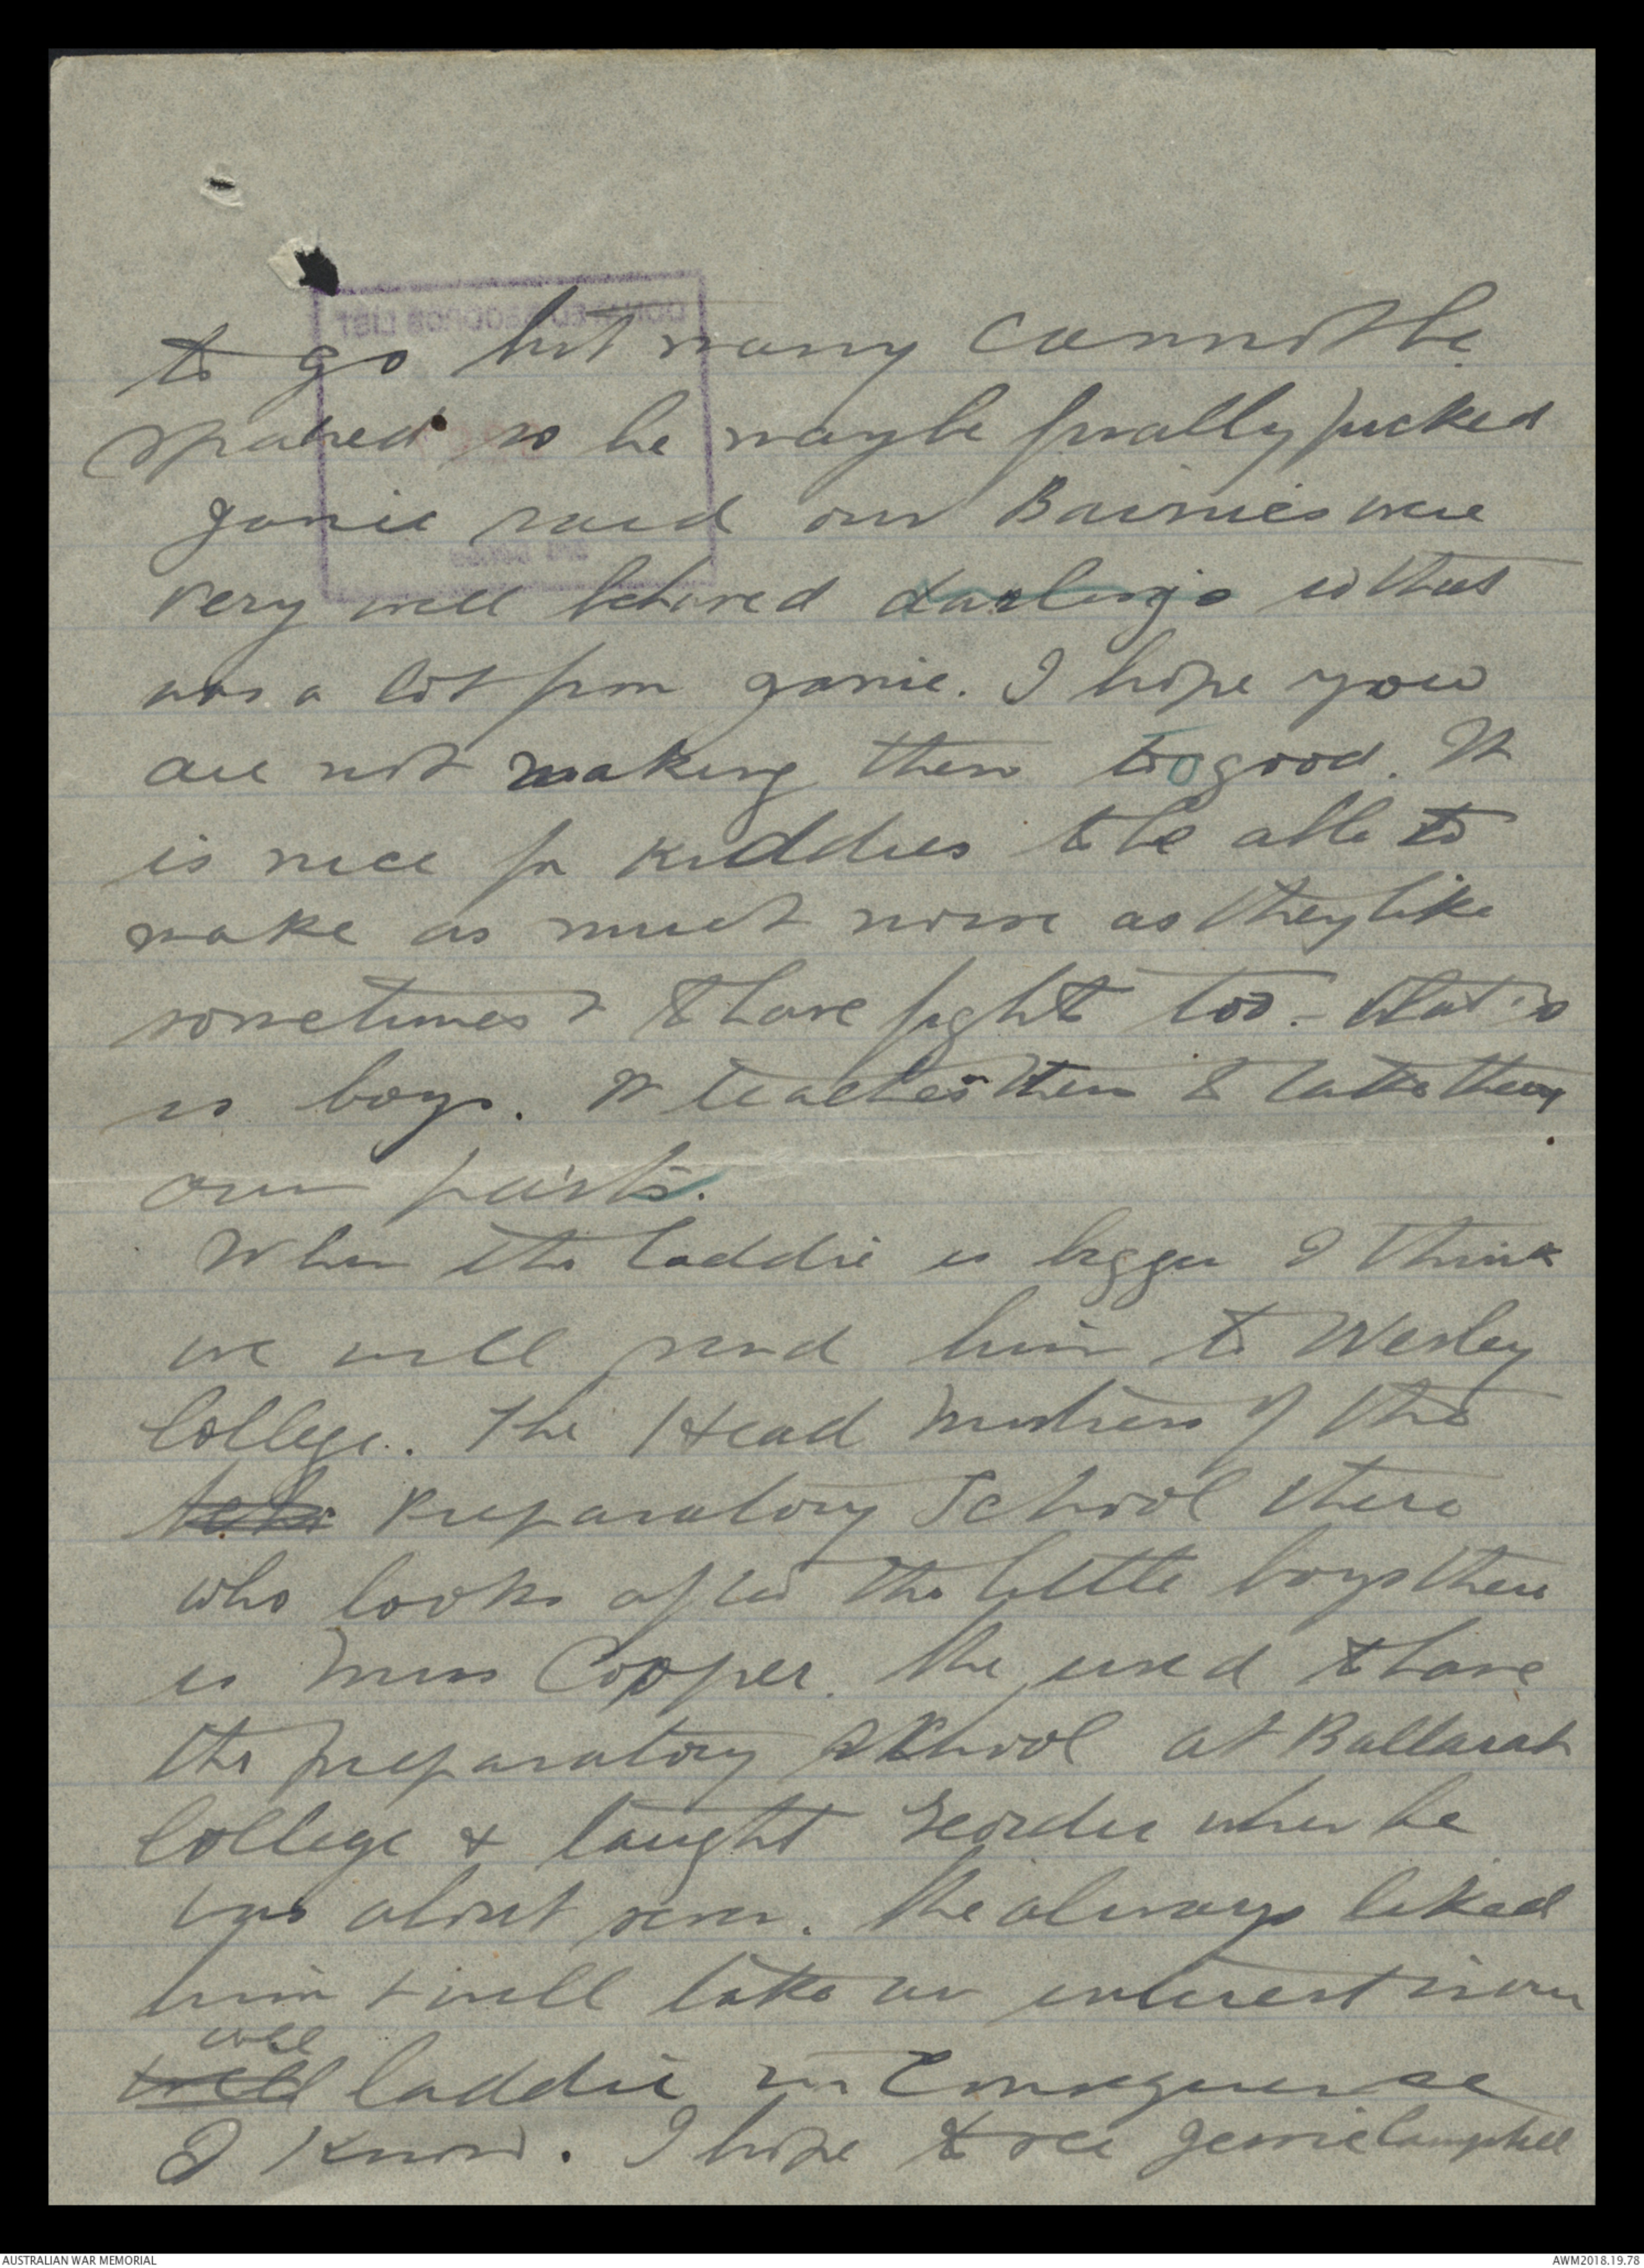 to go but many cannot be
spared so he may be finally picked
Janie said our Bairnies were
very well behaved darlings & that
was a lot from Janie. I hope you
are not making them too good. It
is nice for kiddies to be able to
make as much noise as they like
sometimes & to have fights too - that is
as boys. It teaches them to take their
own parts.
When the laddie is bigger I think
we will send him to Wesley
College. The Head Mistress of the
Preparatory School there
who looks after the little boys there
is Miss Cooper. She used to have
the preparatory school at Ballarat
College & taught Geordie when he
was about seven. She always liked
him & will take an interest in our
wee
laddie in consequence
I know. I hope to see Jennie Campbell
DONATED RECORDS LIST
AUSTRALIAN WAR MEMORIAL
AWM2018.19.78